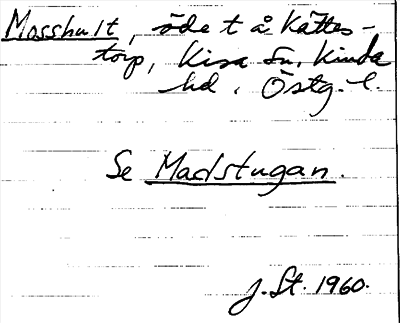 Mosshult, öde t å Kättes-
torp, Kisa sn, Kinda
hd. Östg. l.
Se Madstugan.
J. St. 1960.